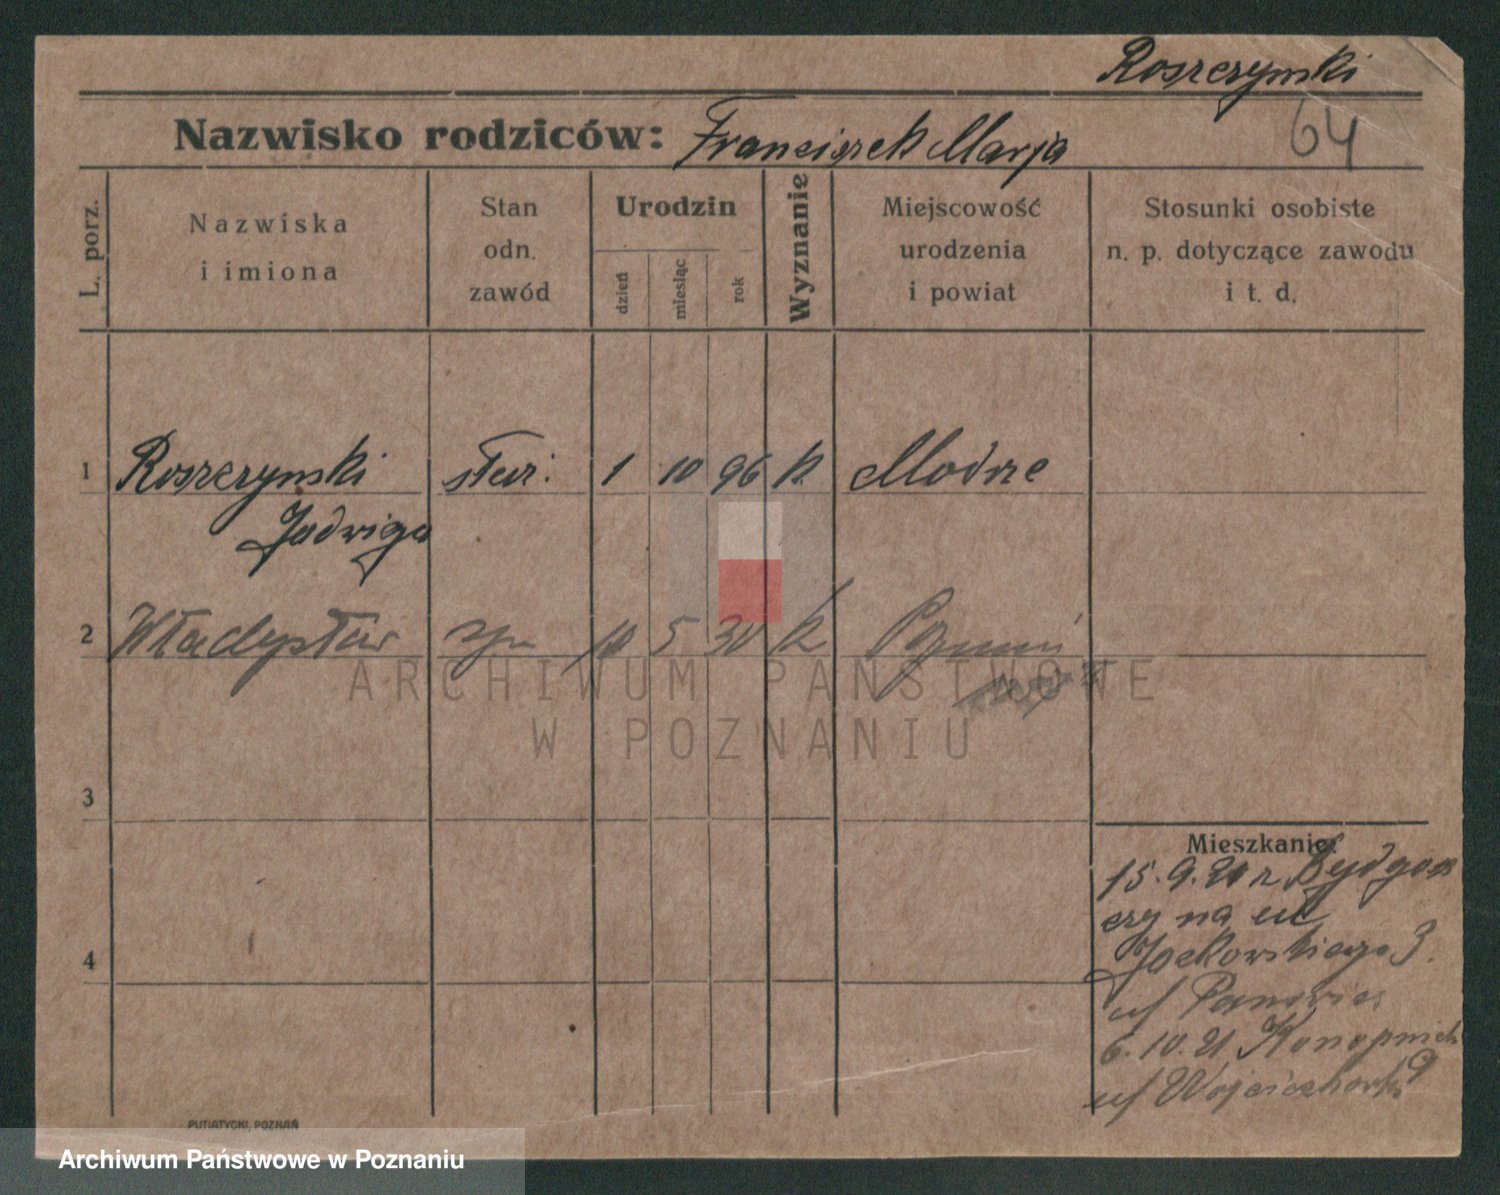 Roszczynski
Nazwisko rodziców: Franciszek Marja
64
L. porz.
Nazwiska
i imiona
Stan
odn.
zawód
Urodzin
dzień
miesiąc
rok
Wyznanie
Miejscowość
urodzenia
i powiat
Stosunki osobiste
n. p. dotyczące zawodu
i t. d.
1 Roszczynski służ. 1 10 96 k. Modrze
Jadwiga
2 Władysław syn 10 5 30 k Poznań
3
4
Mieszkanie:
15.9.21 z Bydgosz
czy na ul
Jackowskiego 3.
6.10.21 Konopnick
9
PUTIATYCKI, POZNAŃ
ARCHIWUM PAŃSTWOWE
W POZNANIU
Archiwum Państwowe w Poznaniu